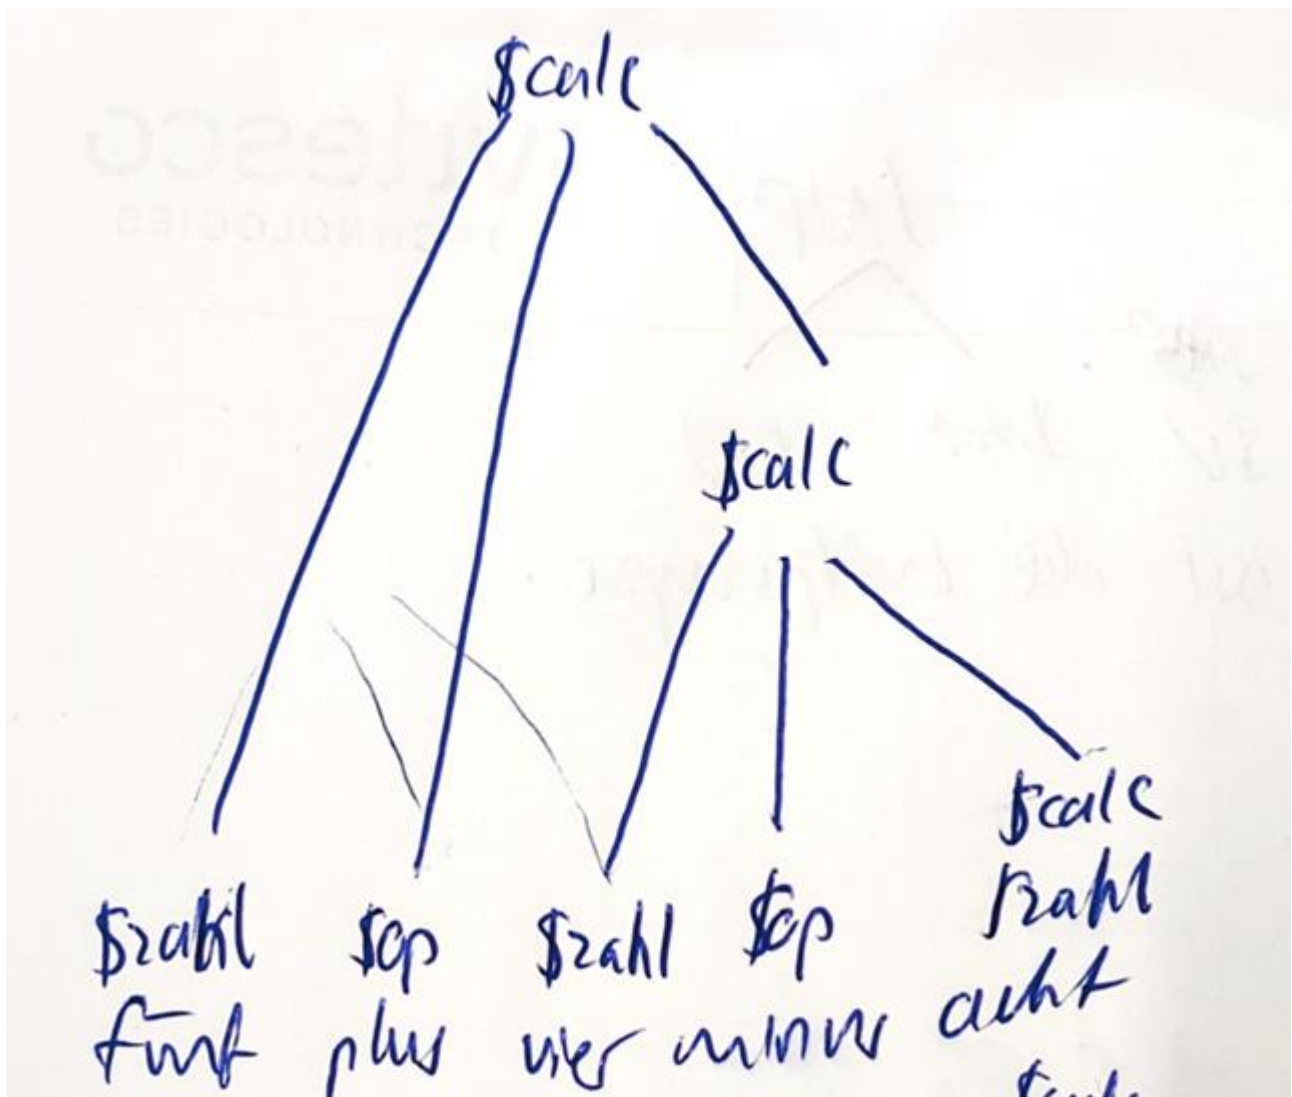 $calc
$calc
$calc
$zahl $op $zahl $op $zahl
fünf plus vier minus acht